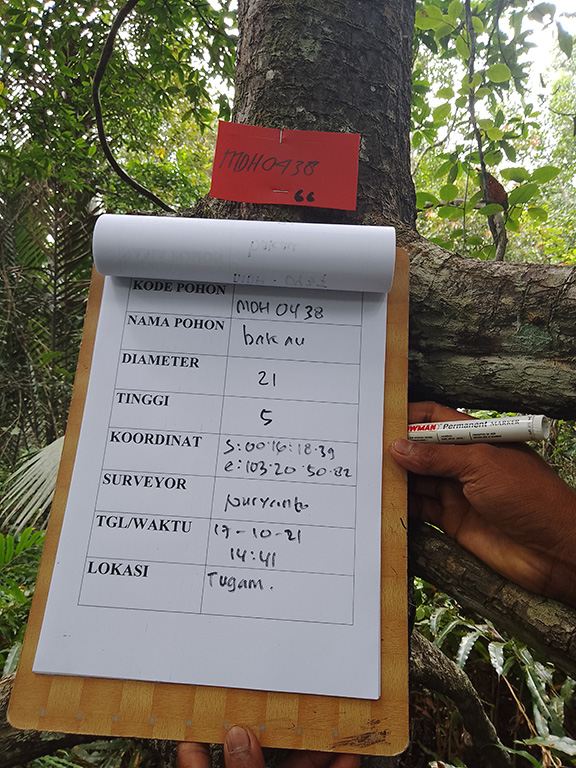 MDH0438
KODE POHON MDH 0438
NAMA POHON bakau
DIAMETER 21
TINGGI 5
KOORDINAT S:00·16·18·39
e:103·20·50·82
SURVEYOR Nuryanto
TGL/WAKTU 17-10-21
14:41
LOKASI Tugam.
OWMAN Permanent MARKER